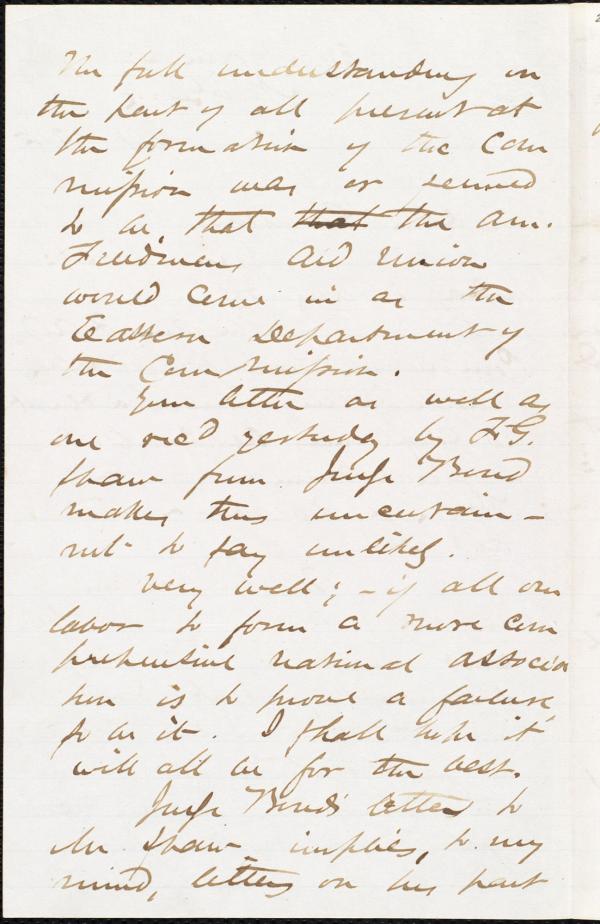 The full understanding on
the part of all present at
the formation of the Com
mission was or seemed
to be, that that the Am.
Freedmens Aid Union
would come in as the
Eastern Department of
the Commission.
Your letter as well as
one rec'd yesterday by F.G.
Shaw from Judge Bond
makes this uncertain -
not to say unlikely.
Very well; - if all our
labor to form a more com
prehensive national associa
tion is to prove a failure,
so be it. I shall hope it
will all be for the best.
Judge Bond's letter to
Mr Shaw implies, to my
mind, letters on his part